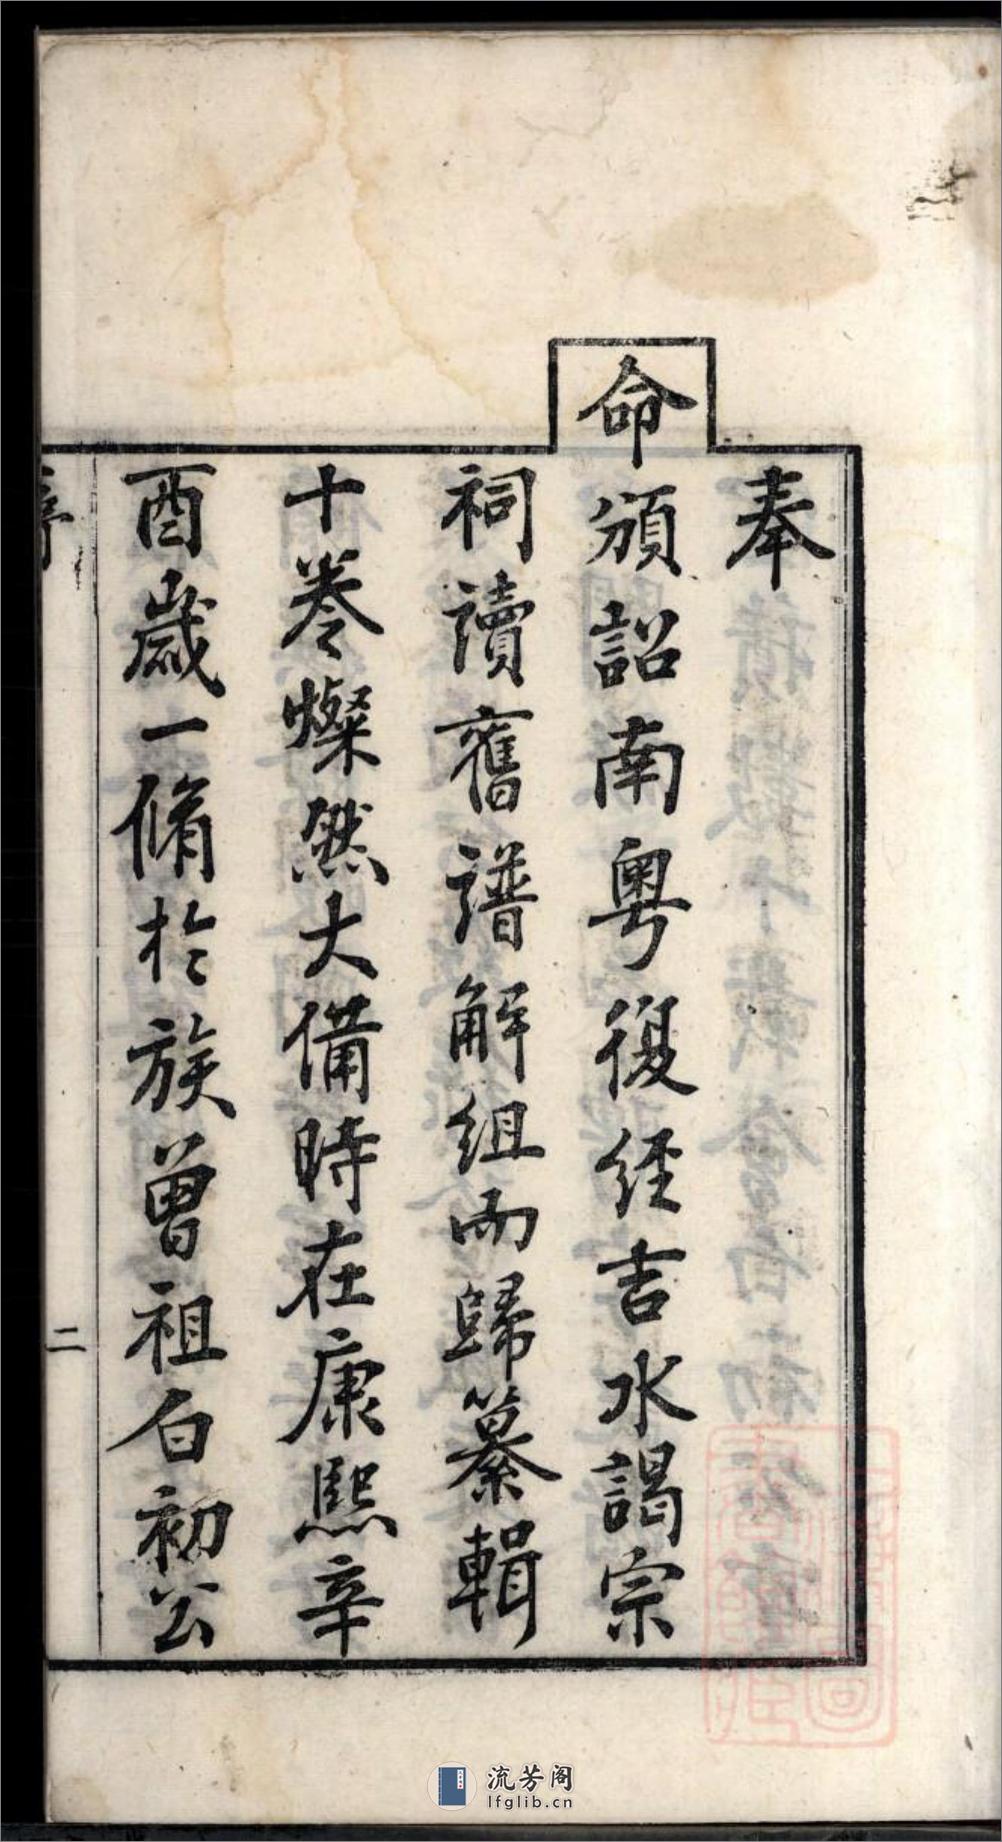 奉
命頒詔南粵復經吉水謁宗
祠讀舊譜解組而歸纂輯
十卷燦然大備時在康熙辛
酉歲一脩於族曾祖白初公
序
二
流芳阁
lfglib.cn